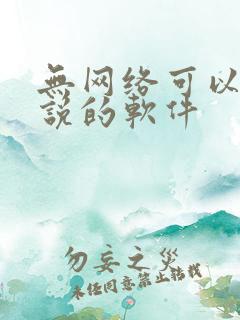 無网络可以
說的軟件
勿妄之災
未经同意禁止转载